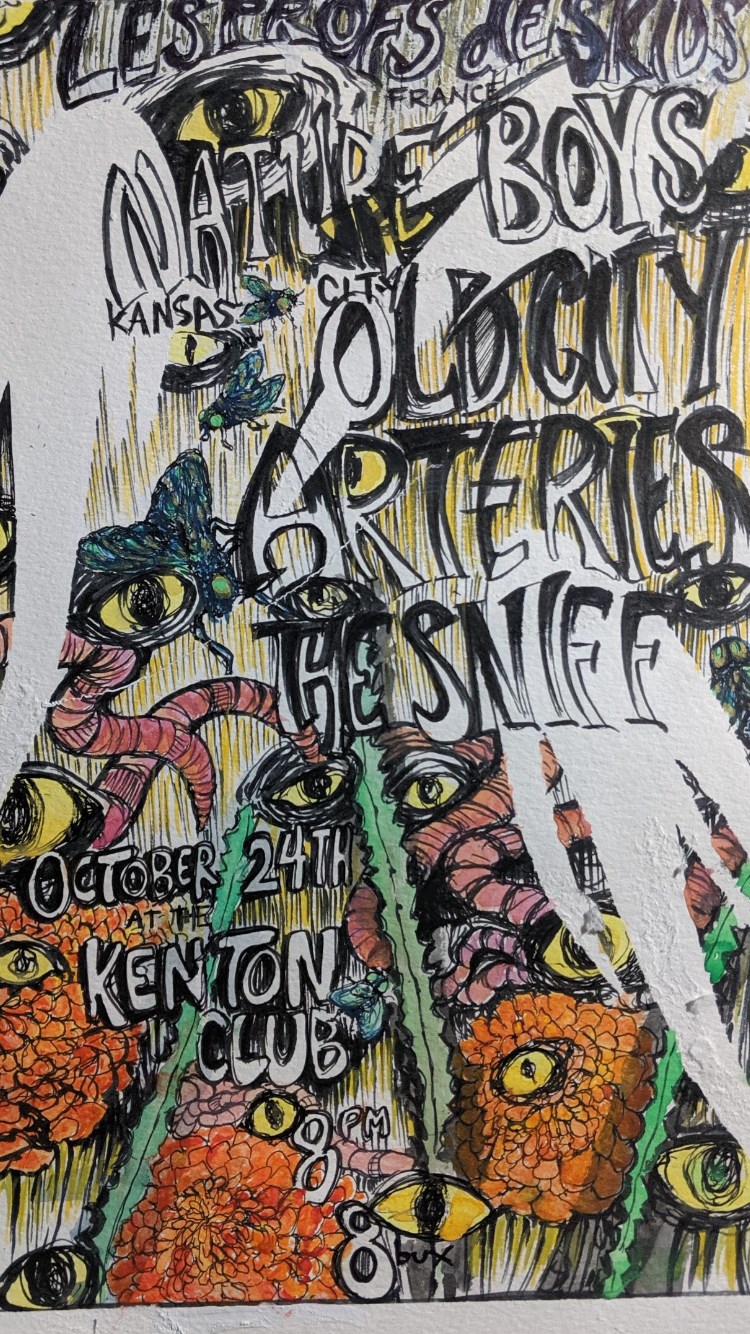 LES PROFS dE SKIDS
FRANCE
NATURE BOYS
KANSAS CITY
OLD CITY
ARTERIES
THE SNIFF
OCTOBER 24TH
AT THE
KENTON
CLUB
8PM
8 bux